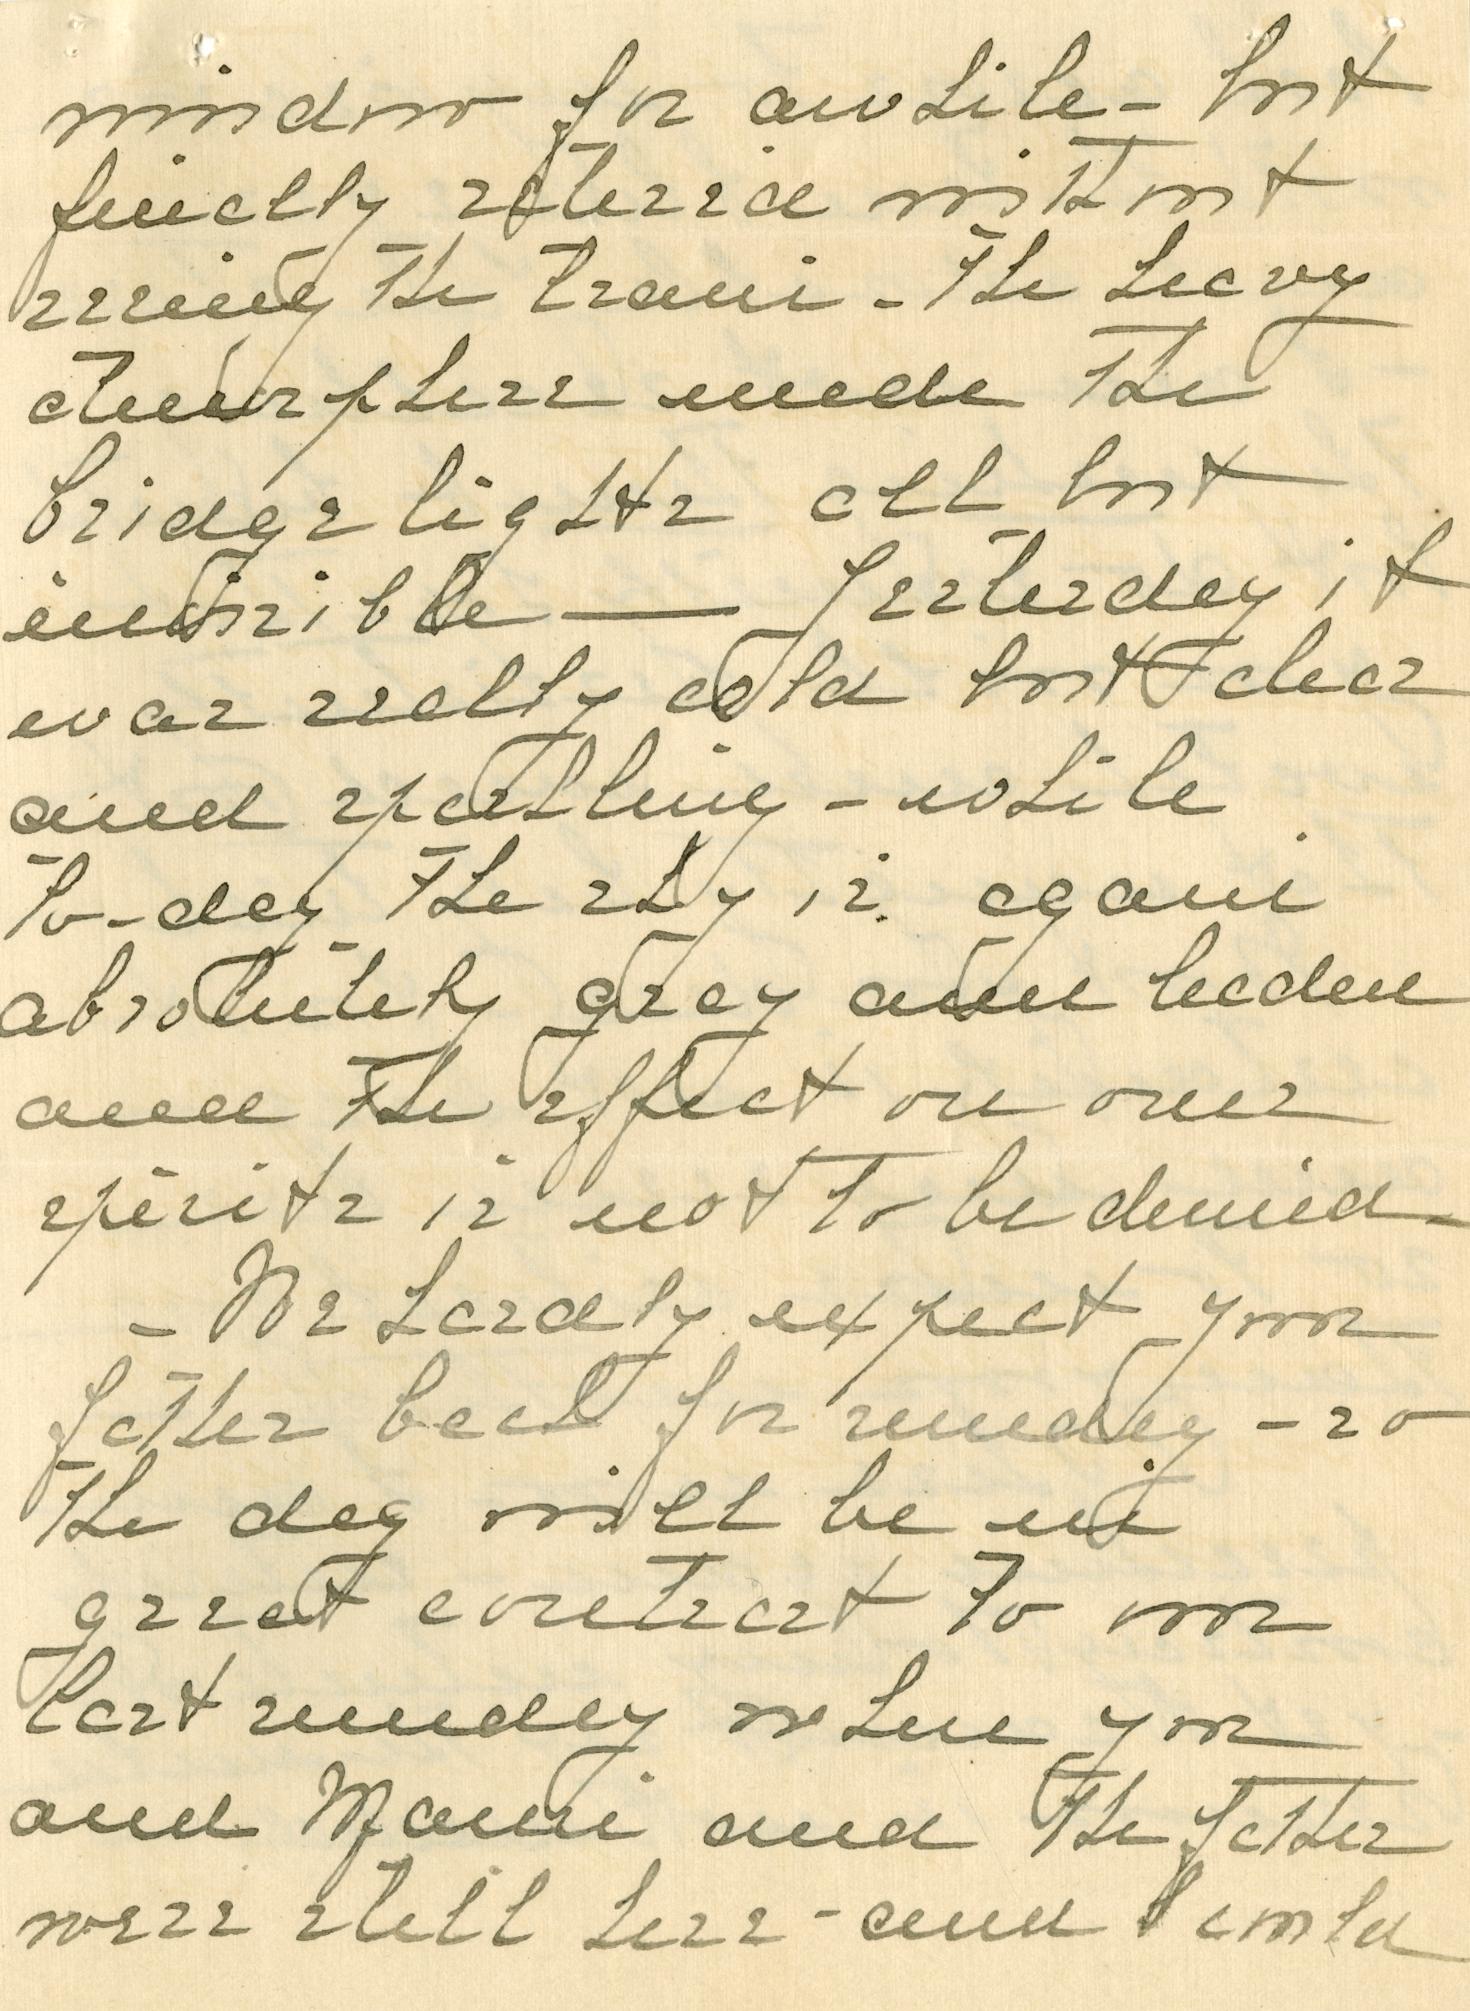 window for awhile - but
finally retired without
seeing the train - The heavy
atmosphere made the
bridge lights all but
invisible — Yesterday it
was really cold but clear
and sparkling - while
to-day the sky is again
absolutely grey and leaden
and the effect on ones
spirits is not to be denied -
- We hardly expect your
father back for sunday - so
the day will be in
great contrast to our
last sunday when you
and Mami and the father
were still here - and I could